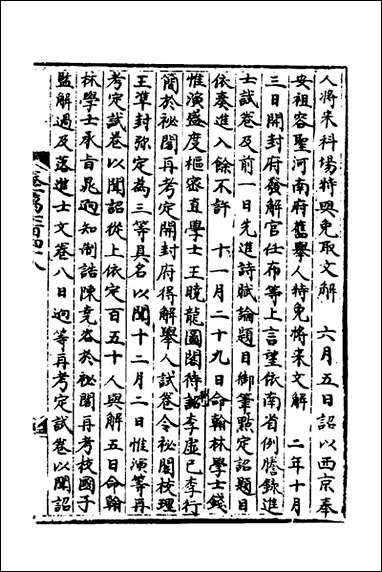 人將来科場特與免取文解　六月五日詔以西京奉
安祖容聖河南府舊舉人特免將来文解　二年十月
三日開封府發解官任布等上言望依南省例謄錄進
士試卷及前一日先進詩賦論題目御筆點定詔題目
依奏進入餘不許　十一月二十九日命翰林學士錢
惟演盛度樞密直學士王曉龍圖閣待制李虛已李行
簡於祕閣再考定開封府得解舉人試卷令祕閣校理
王準封弥定為三等具名以聞十二月二日惟演等再
考定試卷以聞詔從上依定百五十人與解五日命翰
林學士承旨晁逈知制誥陳堯咨於祕閣再考校國子
監解過及落進士文卷八日逈等再考定試卷以聞詔